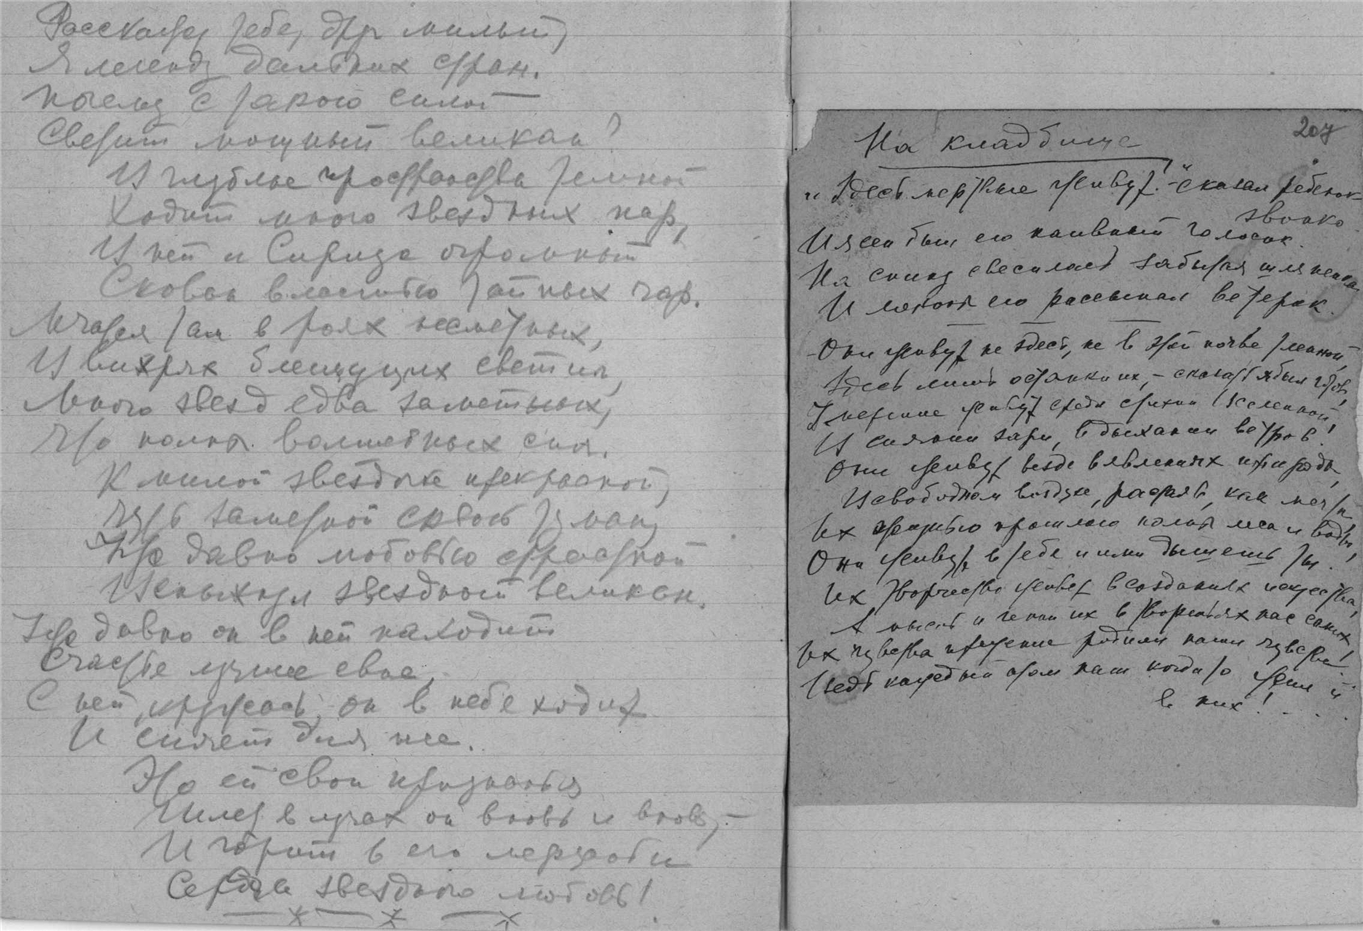 Расскажу тебе, друг милый,
Я легенду дальних стран.
Почему с такою силой
Светит мощный великан?
И глубже пространства темной
Ходит много звездных пар,
И ней и Сириус огромный
Скован властью тайных чар.
Мчатся там в роях несметных,
И вихрях блещущих светил,
Много звезд едва заметных,
Что полны волшебных сил.
К милой звездочке прекрасной,
Чуть заметной сквозь туман,
Уже давно любовью страстной
Вспыхнул звездный великан.
Уже давно он в ней находит
Счастье лучшее свое,
С ней, кружась, он в небе ходит
И сияет для нее.
Это ей свои признанья
Шлет в лучах он вновь и вновь,—
И горит в его мерцаньи
Сердца звездного любовь!
207
На кладбище
"Здесь мертвые живут!"- сказал ребенок
звонко.
И ясен был его наивный голосок.
На спину свесилась забытая шляпенка
И локоны его рассыпал ветерок.
- Они живут не здесь, не в этой почве тленной,
Здесь лишь останки их, - сказать я был готов,
Умершие живут среди стихий Вселенной,
В сиянии зари, в дыхании ветров!
Они живут везде в явлениях природы,
В свободном воздухе, растаяв, как мечты
Их жизнью прошлою полны леса и воды,
Они живут в тебе и ими дышешь ты!
Их творчество живет в созданиях искусства,
А мысль и гений их в твореньях нас самих,
Их чувства прежние родили наши чувства
Ведь каждый атом наш когда-то жил и
в них! . . .